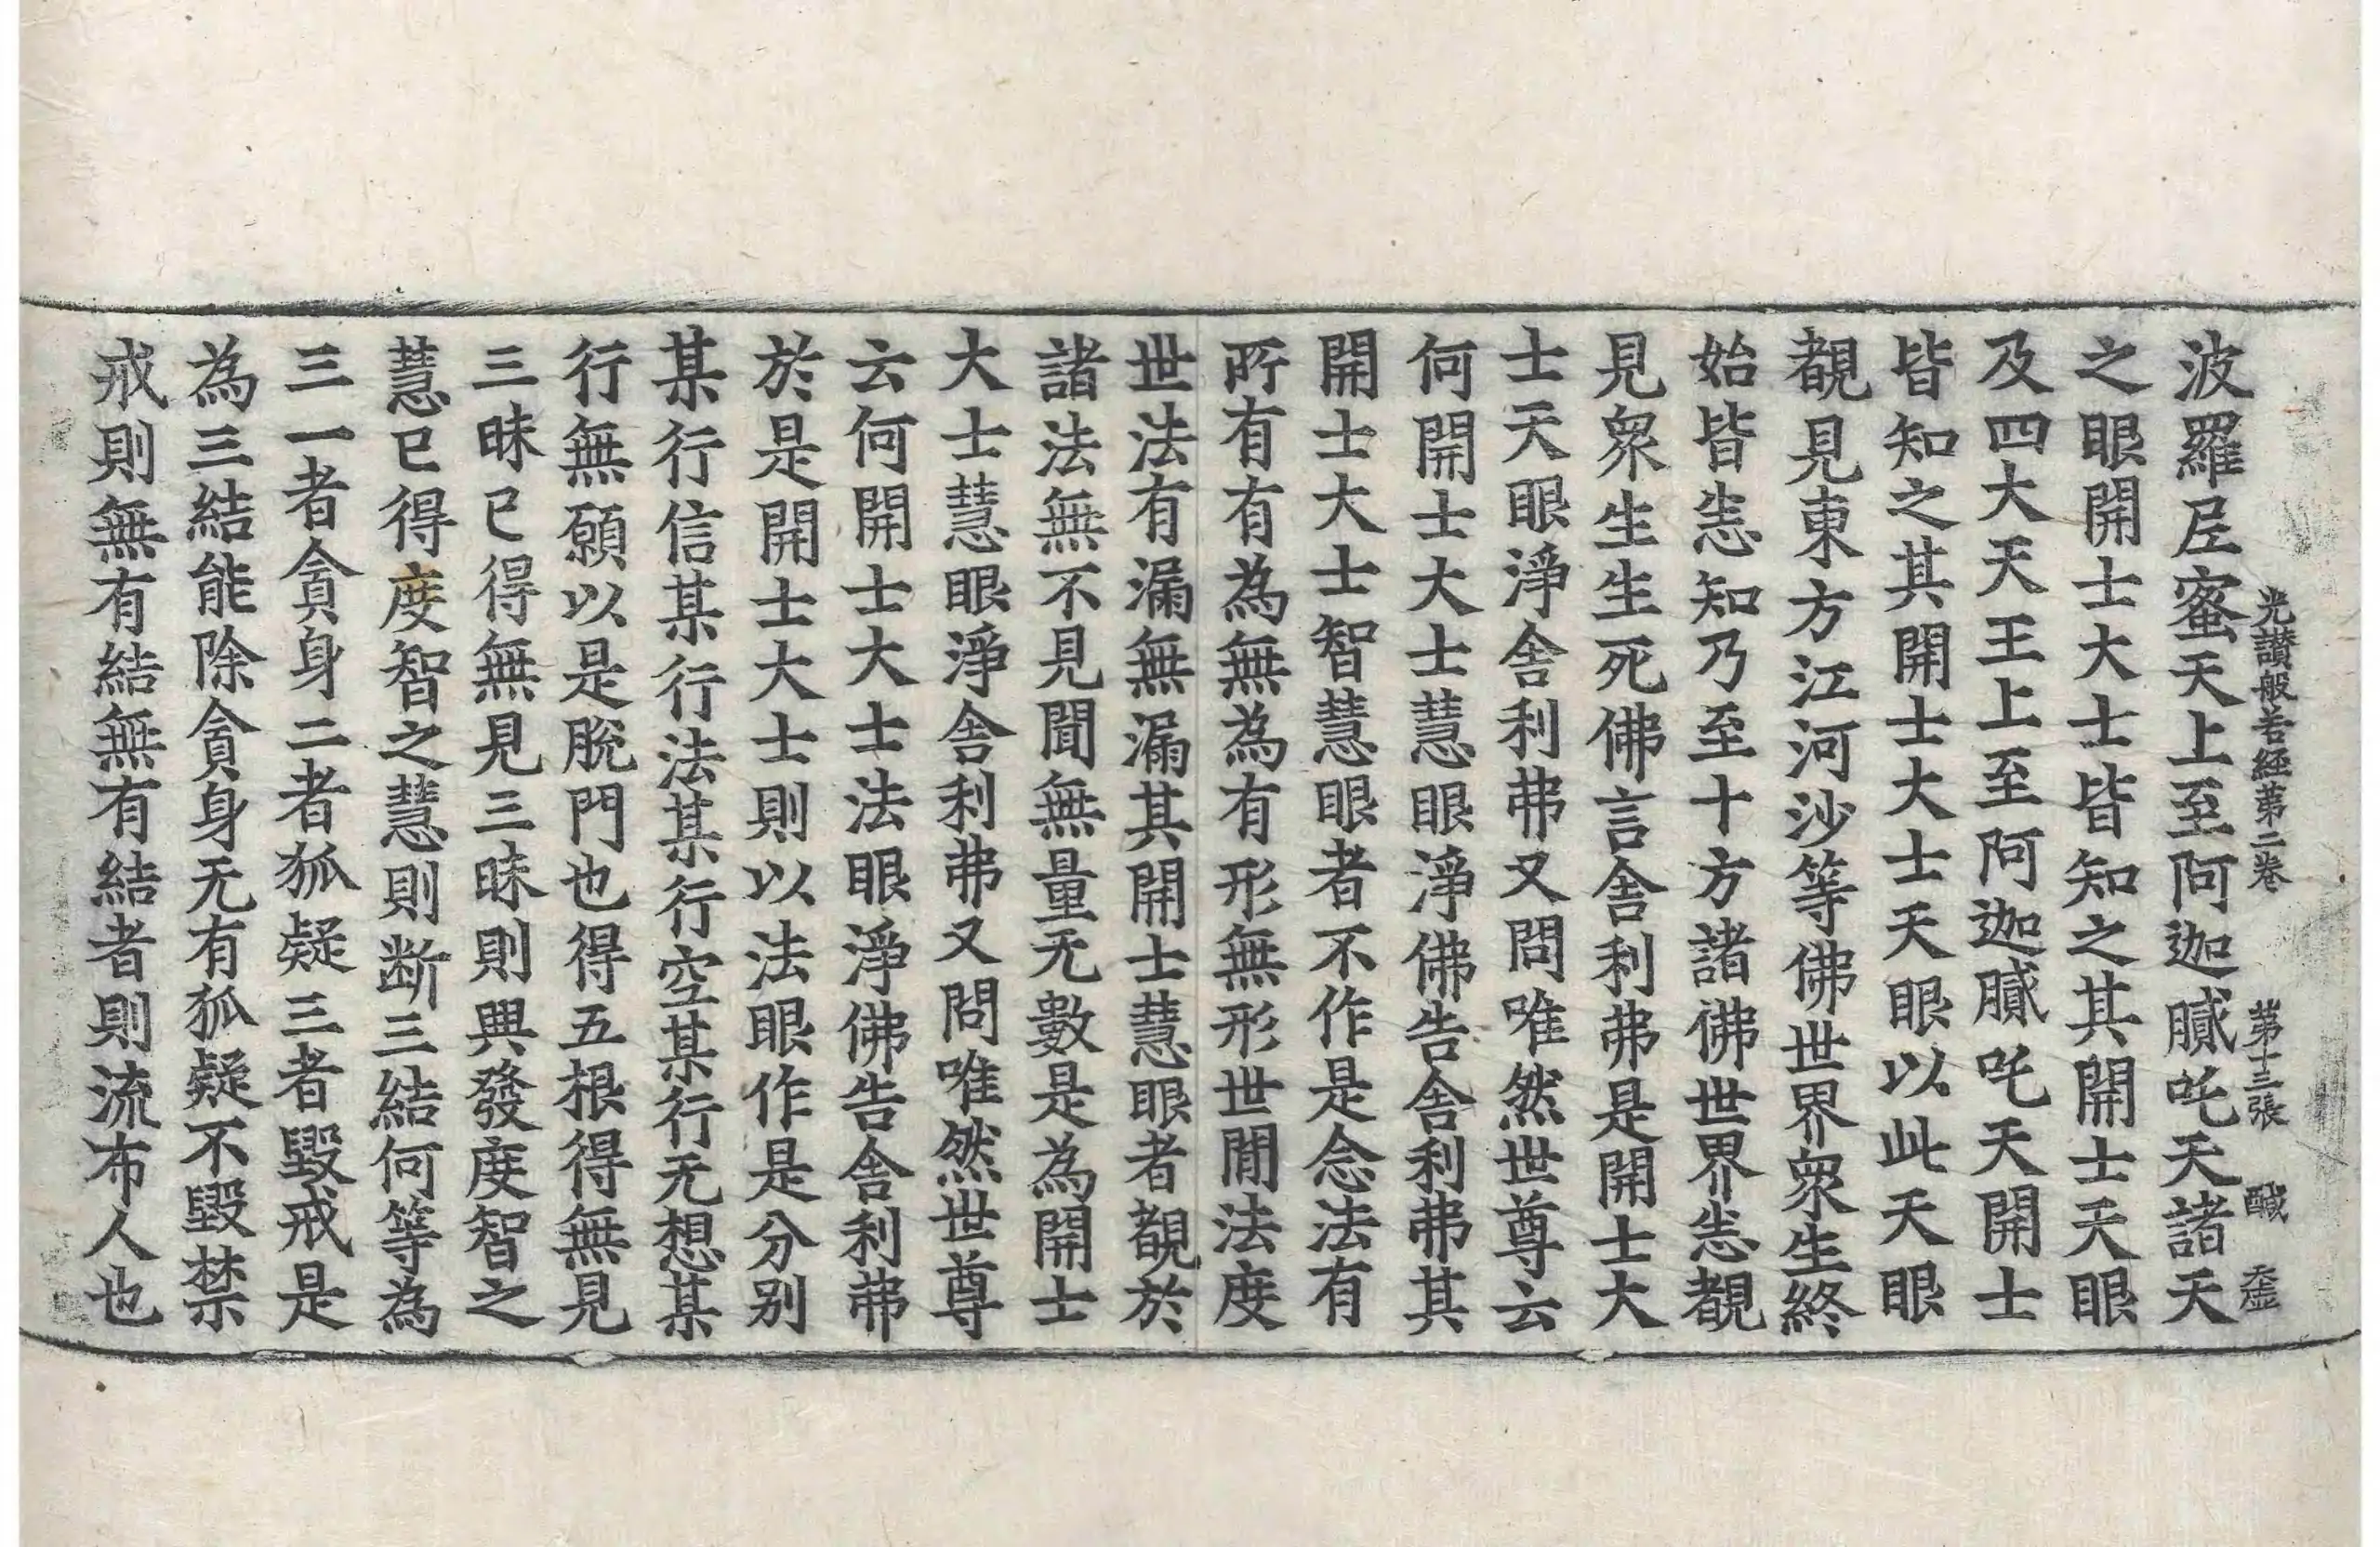 光讃般若経第二卷 第十三張 醎
波羅𡰱蜜天上至阿迦膩吒天諸天
之眼開士大士皆知之其開士天眼
及四大天王上至阿迦膩吒天開士
皆知之其開士大士天眼以此天眼
覩見東方江河沙等佛世界衆生終
始皆悉知乃至十方諸佛世界悉覩
見衆生生死佛言舎利弗是開士大
士天眼淨舎利弗又問唯然世尊云
何開士大士慧眼淨佛告舎利弗其
開士大士智慧眼者不作是念法有
所有有為無為有形無形世閒法度
世法有漏無漏其開士慧眼者覩於
諸法無不見聞無量无數是為開士
大士慧眼淨舎利弗又問唯然世尊
云何開士大士法眼淨佛告舎利弗
於是開士大士則以法眼作是分别
某行信某行法某行空某行无想某
行無願以是脫門也得五根得無見
三昧已得無見三昧則興發度智之
慧已得度智之慧則断三結何等為
三一者貪身二者狐疑三者毀戒是
為三結能除貪身无有狐疑不毀禁
戒則無有結無有結者則流布人也